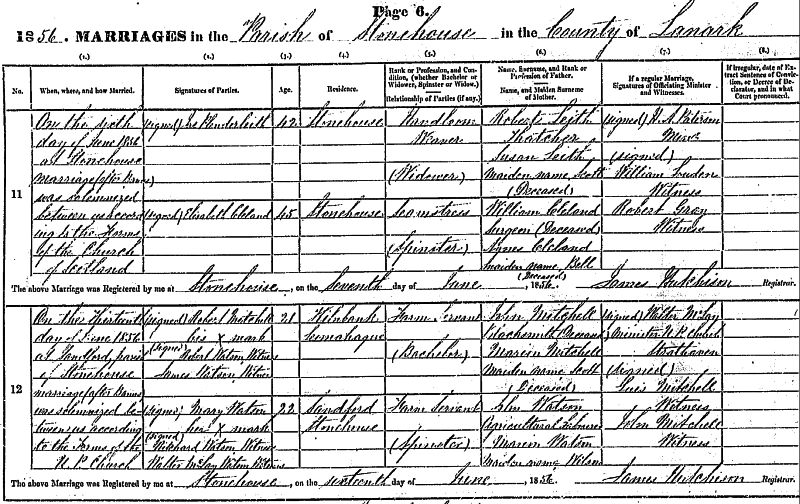 Page 6.
1856. MARRIAGES in the Parish of Stonehouse in the County of Lanark
(1.) (2.) (3.) (4.) (5.) (6.) (7.) (8.)
No.
When, where, and how Married.
Signatures of Parties.
Age.
Residence.
Rank or Profession, and Condition, (whether Bachelor or Widower, Spinster or Widow.)
Relationship of Parties (if any.)
Name, Surname, and Rank or Profession of Father.
Name, and Maiden Surname of Mother.
If a regular Marriage, Signatures of Officiating Minister and Witnesses.
If irregular, date of Extract Sentence of Conviction, or Decree of Declarator, and in what Court pronounced.
11
On the sixth
day of June 1856
at Stonehouse
marriage (after Banns)
was solemnized
between us accord
ing to the Forms
of the Church
of Scotland
(signed)
42
Stonehouse
Handloom
Weaver
(Widower)
Robert Leith
Thatcher
Susan Leith
maiden name Scott
(Deceased)
(signed) H. A. Paterson
Minr
(signed)
William Loudon
Witness
(signed) Elizabeth Cleland
45
Stonehouse
Seamstress
(Spinster)
William Cleland
Surgeon (Deceased)
Agnes Cleland
maiden name Bell
(Deceased)
Robert Gray
Witness
The above Marriage was Registered by me at Stonehouse, on the Seventh day of June, 1856. James Hutchison Registrar.
12
On the thirteenth
day of June 1856
at Sandford, parish
of Stonehouse
marriage (after Banns)
was solemnized be
tween us according
to the Forms of the
U. P. Church
(signed) Robert Mitchell
his x mark
(signed) Robert Watson Witness
James Watson Witness
21
Kilnbank
Lesmahagow
Farm Servant
(Bachelor)
John Mitchell
Blacksmith
Marion Mitchell
maiden name Scott
(Deceased)
(signed)
Minister U. P. Church
Strathaven
(signed)
Mitchell
Witness
(signed) Mary Watson
her x mark
(signed)
Watson Witness
Walter McLay Witness
22
Sandford
Stonehouse
Farm Servant
(Spinster)
John Watson
Agricultural Labourer
Marion Watson
maiden name Wilson
John Mitchell
Witness
The above Marriage was Registered by me at Stonehouse, on the sixteenth day of June, 1856. James Hutchison Registrar.